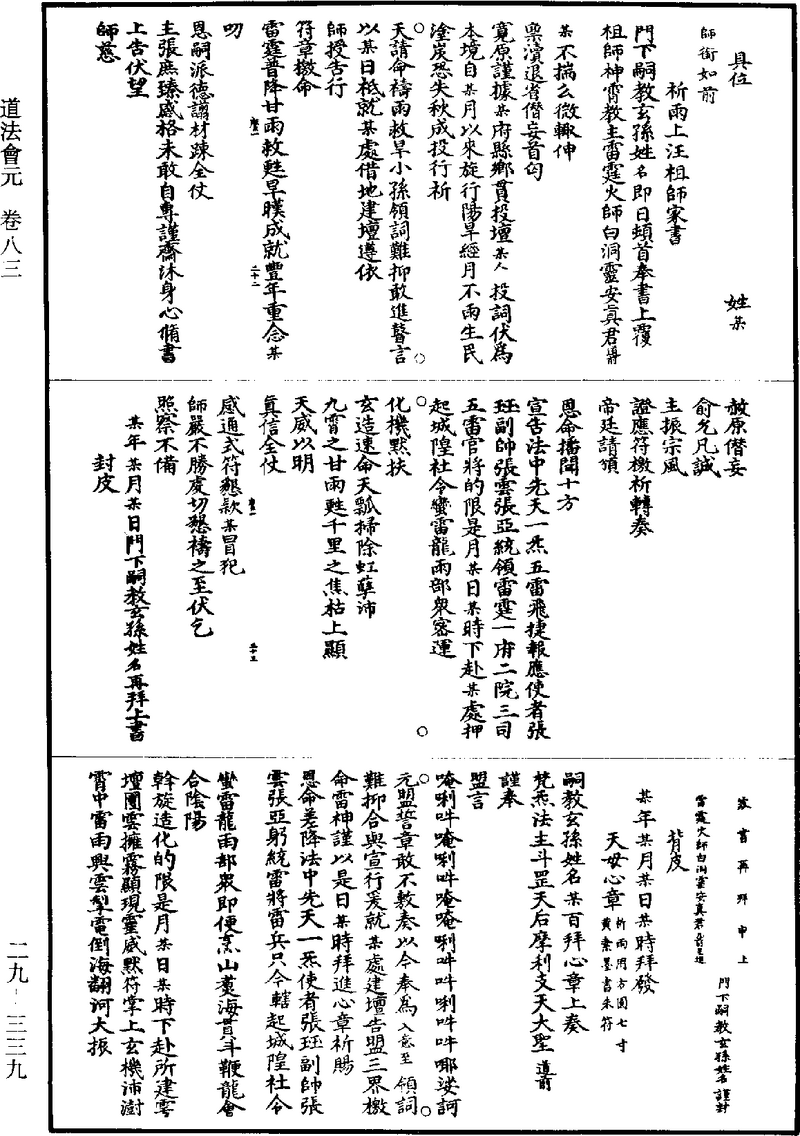 道法會元　卷八三
二九－三三九
具位　　姓某
師銜如前
祈雨上汪祖師家書
門下嗣教玄孫姓名即日頓首奉書上覆
祖師神霄教主雷霆火師白洞靈安真君
某不揣么微輙伸
奧瀆退省僭妄首匃
寬原謹據某府縣鄉貫投壇某人投詞伏爲
本境自某月以來旋行陽旱經月不雨生民
塗炭恐失秋成投行祈
天請命禱雨救旱小孫領詞難抑敢進瞽言
以某日柢就某處借地建壇遵依
師授告行
符章檄命
雷霆普降甘雨救甦旱暵成就豐年重念某
叨
恩嗣派德譾材踈全仗
主張庶臻感格未敢自專謹齋沐身心脩書
上告伏望
師慈
赦原僭妄
俞允凡誠
主振宗風
證應符檄祈轉奏
帝廷請頒
恩命播聞十方
宣告法中先天一炁五雷飛捷報應使者張
珏副帥張雲張亞統領雷霆一府二院三司
五雷官將的限是月某日某時下赴某處押
起城隍社令蠻雷龍雨部衆密運
化機默扶
玄造速命天瓢掃除虹孽沛
九霄之甘雨甦千里之焦枯上顯
天威以明
真信全仗
感通式符懇款某冒犯
師嚴不勝虔切懇禱之至伏乞
照察不備
某年某月某日門下嗣教玄孫姓名再拜上書
封皮
家書再拜申上
雷霆火師白洞靈安真君
門下嗣教玄孫姓名謹封
背皮
某年某月某日某時拜發
天母心章祈雨用方圓七寸黄素墨書朱符
嗣教玄孫姓名某百拜心章上奏
梵炁法主斗罡天后摩利支天大聖
謹奉
盟言
唵唎吽唵唎吽唵唵唎吽吽唎吽吽㖿娑訶
元盟誓章敢不敷奏以今奉爲入意至領詞
難抑合與宣行爰就某處建壇告盟三界檄
命雷神謹以是日某時拜進心章祈賜
恩命差降法中先天一炁使者張珏副帥張
雲張亞躬統雷將雷兵只今轄起城隍社令
蠻雷龍雨部衆即便烹山煑海貫斗鞭龍會
合陰陽
斡旋造化的限是月某日某時下赴所建雩
壇團雲擁霧顯現靈威默符掌上玄機沛澍
霄中雷雨興雲掣電倒海翻河大振